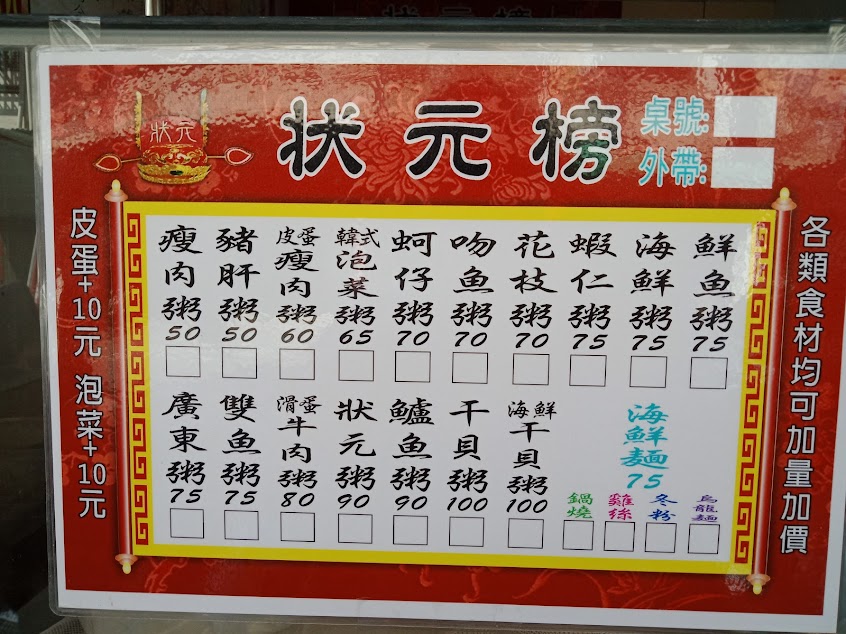 狀元榜
狀元
狀元榜
桌號:
外帶:
皮蛋+10元 泡菜+10元
瘦肉粥 50
豬肝粥 50
皮蛋瘦肉粥 60
韓式泡菜粥 65
蚵仔粥 70
吻魚粥 70
花枝粥 70
蝦仁粥 75
海鮮粥 75
鮮魚粥 75
廣東粥 75
雙魚粥 75
滑蛋牛肉粥 80
狀元粥 90
鱸魚粥 90
干貝粥 100
海鮮干貝粥 100
海鮮麵 75
鍋燒
雞絲
冬粉
烏龍麵
各類食材均可加量加價